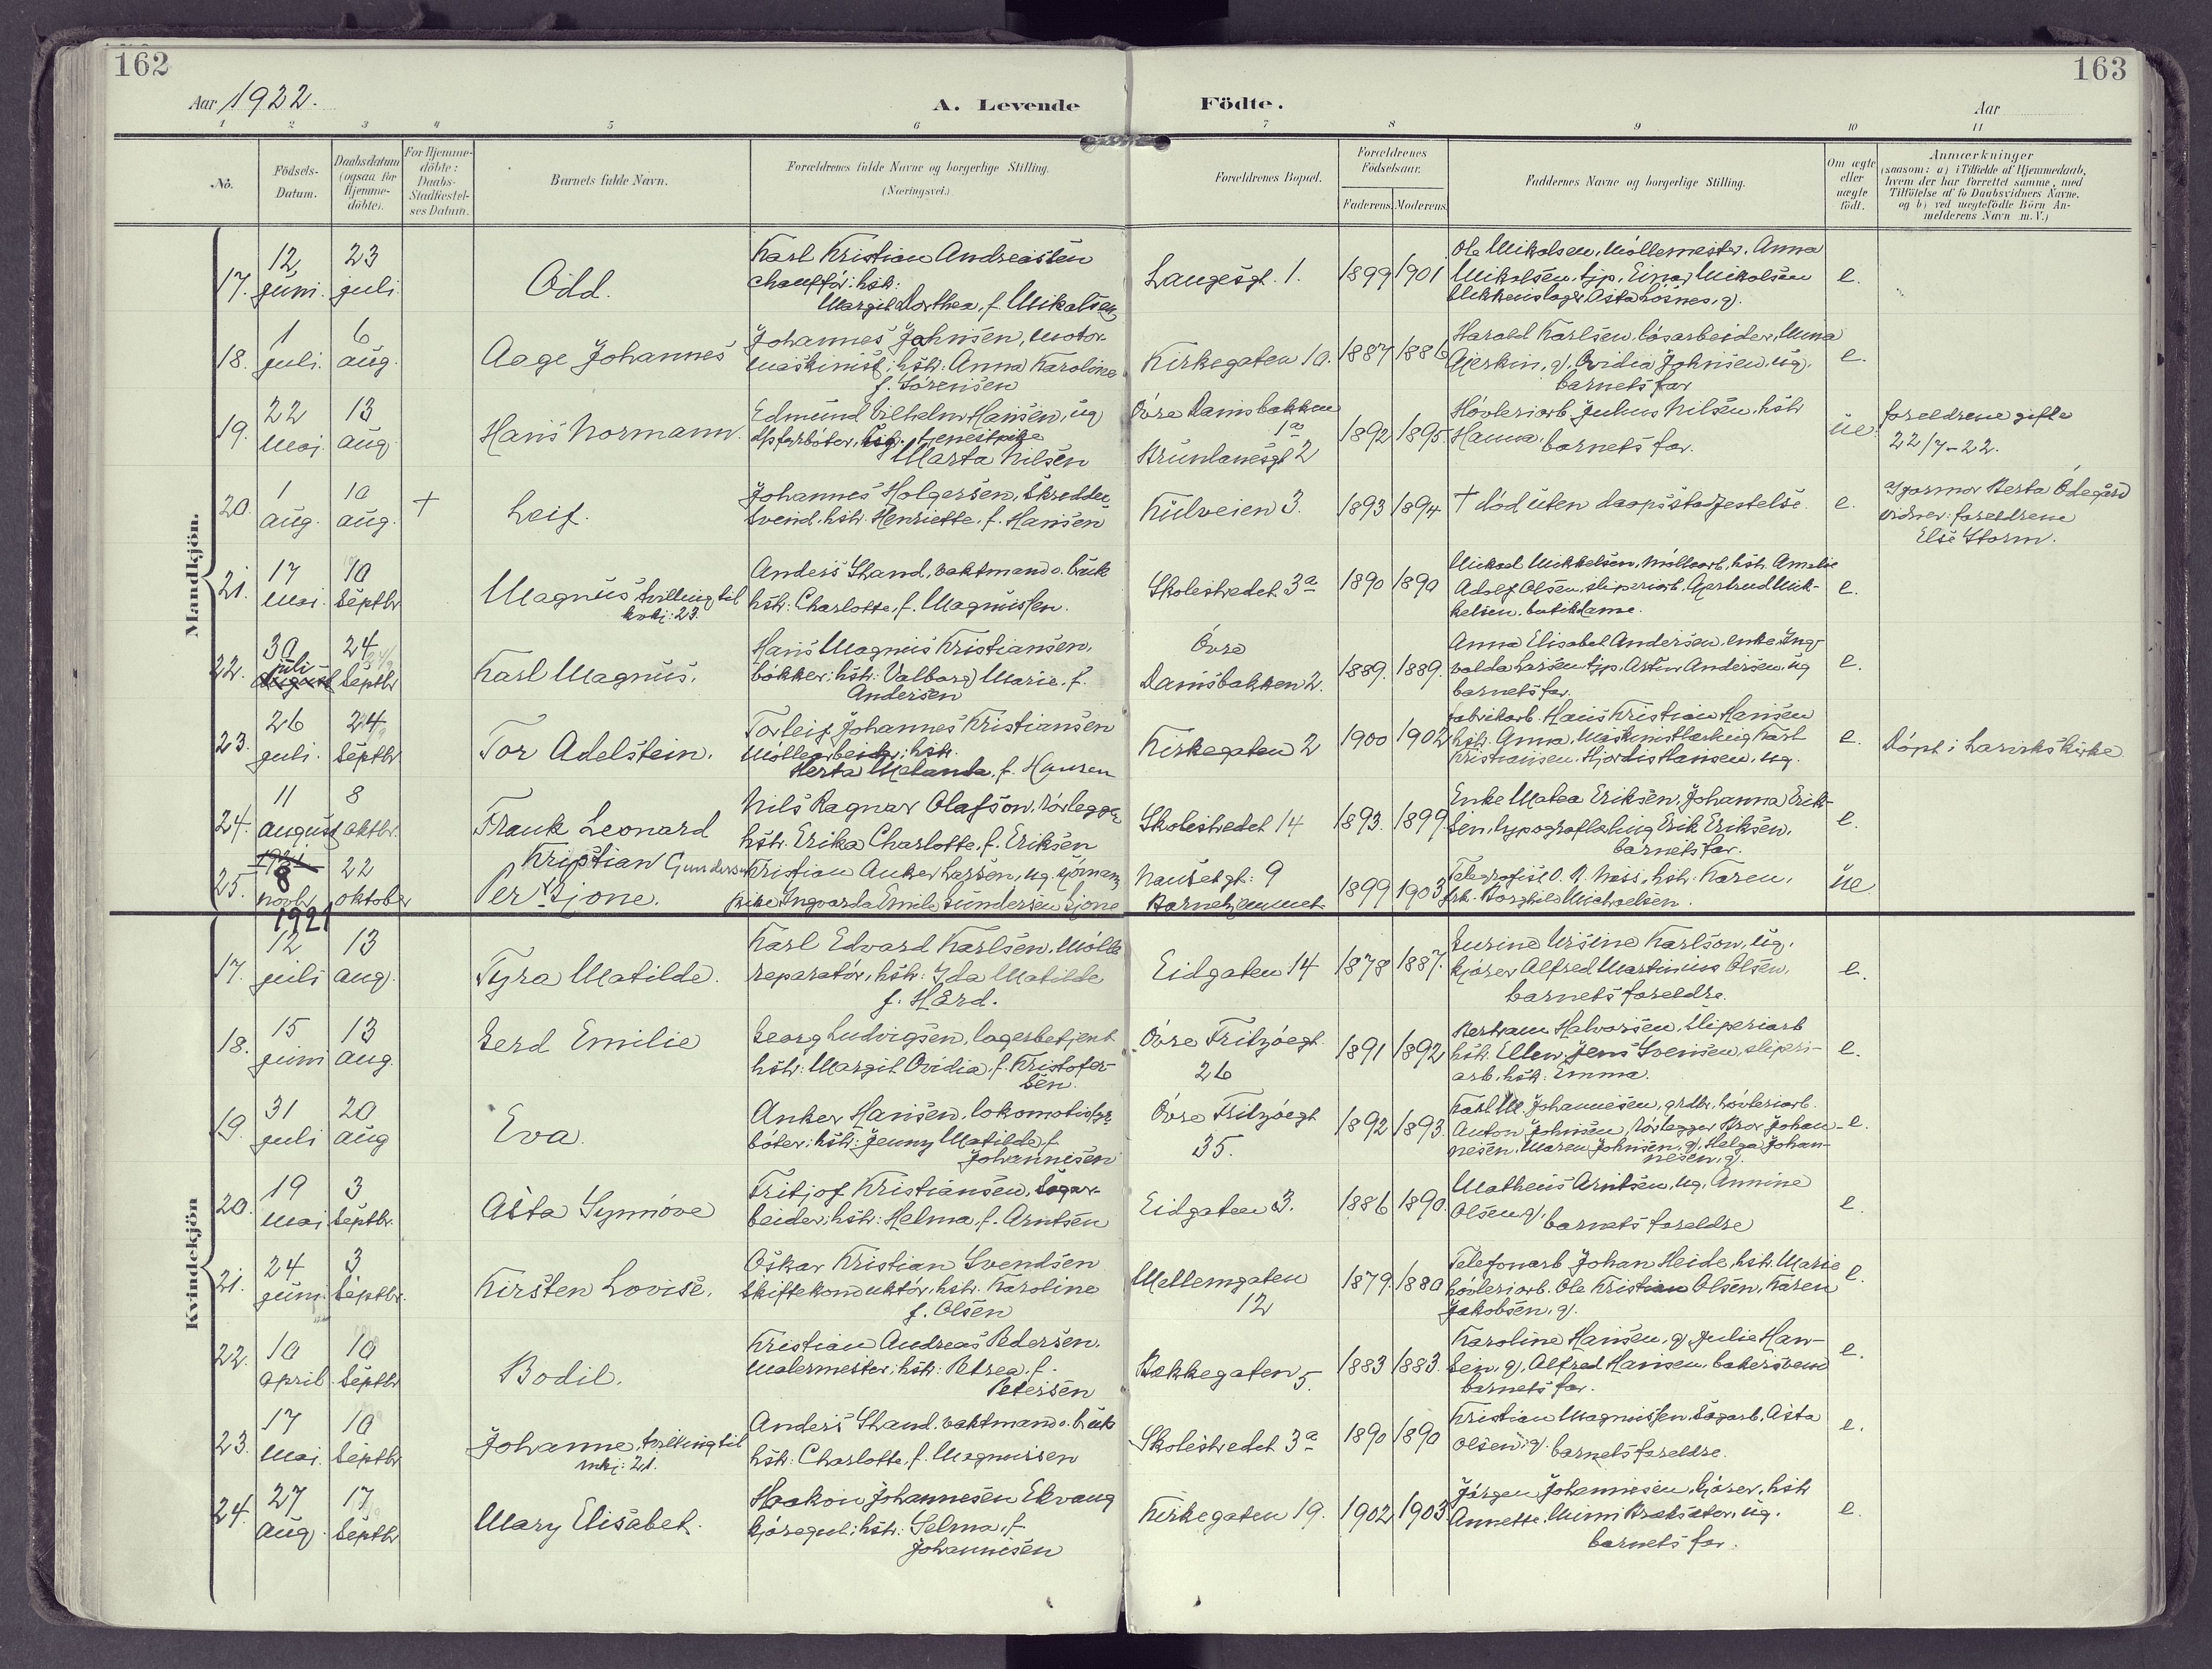 162
163
Aar 1922.
A. Levende Födte.
Aar
1 2 3 4 5 6 7 8 9 10 11
No.
Födsels-Datum.
Daabsdatum (ogsaa for Hjemme-döbte).
For Hjemme-döbte: Daabs-Stadfæstel-ses Datum.
Barnets fulde Navn.
Forældrenes fulde Navne og borgerlige Stilling.
(Næringsvei.)
Forældrenes Bopæl.
Forældrenes Födselsaar.
Faderens. Moderens.
Faddernes Navne og borgerlige Stilling.
Om ægte eller uægte födt.
Anmærkninger
(saasom: a) i Tilfælde af Hjemmedaab, hvem der har forrettet samme, med Tilföielse af to Daabsvidners Navne, og b) ved uægtefödte Börn An-melderens Navn m. V.)
Mandkjön.
17. 12 juni. 23 juli. Odd. Karl Kristian Andreassen chauffór; hstr: Margit Dorthea, f. Mikalsen Langesgt. 1. 1899 1901 Ole Mikalsen, Möllemester. Anna Mikalsen, tjp, Einar Mikalsen blikkenslager, Asta Lösnes, g). e.
18. 1 juli. 6 aug. Aage Johannes Johannes Johnsen, motor-maskinist; hstr: Anna Karoline f. Sörensen Kirkegaten 10. 1887 1886 Harald Karlsen, lösarbeider, Mina Gjerkin, g). Ovidia Johnsen, ug. barnets far e.
19. 22 Mai. 13 aug. Hans Normann. Edmund Vilhelm Hansen, ug Marta Nilsen Övre Damsbakken 1a Brunlanesgt 2 1892 1895 Hövleriarb. Julius Nilsen, hstr Hanna, barnets far. ue. foreldrene gifte 22/7-22.
20. 1 aug. 10 aug. + Leif. Johannes Holgersen, Skredder Svend. hstr. Henriette, f. Hansen Kulveien 3. 1893 1894 † död uten daapsstadfestelse. e. Jjormor Berta Ödegård vidner: foreldrene Else Storm.
21. 17 Mai. 10 Septbr Magnus, tvilling til kvkj: 23. Anders Strand, vaktmand o. bruk hstr: Charlotte, f. Magnussen. Skolestredet 3a 1890 1890 Mikael Mikkelsen, möllearb, hstr. Amalie Adolf Olsen, sliperiarb. Gjertrud Mik-kelsen, butikdame. e.
22. 30 juli 24 Septbr Karl Magnus. Hans Magnus Kristiansen, bökker; hstr: Valborg Marie, f. Andersen Övre Damsbakken 2. 1889. 1889. Anna Elisabet Andersen, enke, Ing-valda Larsen tjp, Artur Andersen, ug barnets far. e.
23. 26 juli. 24 Septbr Tor Adelstein. Torleif Johannes Kristiansen Möllearbeider; hstr. Herta Melanda, f. Hansen Kirkegaten 2 1900 1902 fabrikarb. Hans Kristian Hansen hstr. Anna, Maskinistlærling Karl Kristiansen, Hjördis Hansen, ug. e. Döpt i Larviks Kirke
24. 11 august 8 oktbr. Frank Leonard Nils Ragnar Olafson, rörlegger hstr. Erika Charlotte, f. Eriksen Skolestredet 14 1893. 1899 Enke Matea Eriksen, Johanna Erik-sen, typograflærling Erik Eriksen, barnets far. e.
25. 8 novbr 1921 22 oktober Kristian Gundersen Per Sjone. Kristian Anker Larsen, ug. sjömann, pike Ingvarda Emile Gundersen Sjone Nansetgt: 9 Barnehjemmet 1899 1903 Telegrafist O. A. Moss, hstr. Karen, frk. Borghild Michaelsen. ue
Kvindekjön
17. 12 juli 13 aug. Tyra Matilde. Karl Edvard Karlsen, Mölle reparatör, hstr: Ida Matilde f. Hård. Eidgaten 14 1878 1887. Gurine Ursine Karlson, ug. kjörer Alfred Martinius Olsen, barnets foreldre. e.
18. 15 juni 13 aug. Gerd Emilie Georg Ludvigsen, lagerbetjent hstr: Margit Ovidia, f. Kristofer-sen. Övre Fritzöegt. 26 1891 1892 Bertram Halvorsen, Sliperiarb hstr. Ellen, Jens Svensen, sliperi-arb. hstr: Emma. e.
19. 31 juli 20 aug Eva. Anker Hansen, lokomotivfyr-böter; hstr: Jenny Matilde, f. Johannesen Övre Fritzöegt 35. 1892 1893. Karl M. Johannesen, grdbr, hövleriarb. Anton Johnsen, rörlegger Bror Johan-nesen, Maren Johnsen, g), Helga Johan-nesen, g). e.
20. 19 Mai 3 Septbr. Asta Synnöve Fritjof Kristiansen, Sagar-beider; hstr: Helma, f. Arntsen Eidgaten 3. 1886 1890. Matheus Arntsen, ug, Annine Olsen g), barnets foreldre e.
21. 24 juni. 3 Septbr. Kirsten Lovise. Oskar Kristian Svendsen Skiftekonduktör, hstr. Karoline f. Olsen Mellemgaten 12 1879. 1880 Telefonarb Johan Heide, hstr. Marie hövleriarb. Ole Kristian Olsen, Karen Jakobsen, g). e.
22. 10 april. 10 Septbr Bodil. Kristian Andreas Pedersen. Malermester; hstr: Petrea, f. Petersen Bakkegaten 5. 1883 1883. Karoline Hansen, g) Julie Han-sen, g), Alfred Hansen, bakersvend barnets far. e.
23. 17 Mai. 10 Septbr Johanne, tvilling til mkj: 21. Anders Strand. vaktmand o. bruk hstr: Charlotte, f. Magnussen Skolestredet 3a 1890 1890 Kristian Magnussen, Sagarb, Asta Olsen, g). barnets foreldre. e.
24. 27 aug. 17 Septbr Mary Elisabet. Haakon Johannesen Ekvang kjöregut; hstr: Selma, f. Johannesen Kirkegaten 19. 1902 1903 Jörgen Johannesen, kjörer, hstr Annette, Mimi Bratsator, ug. barnets far. e.